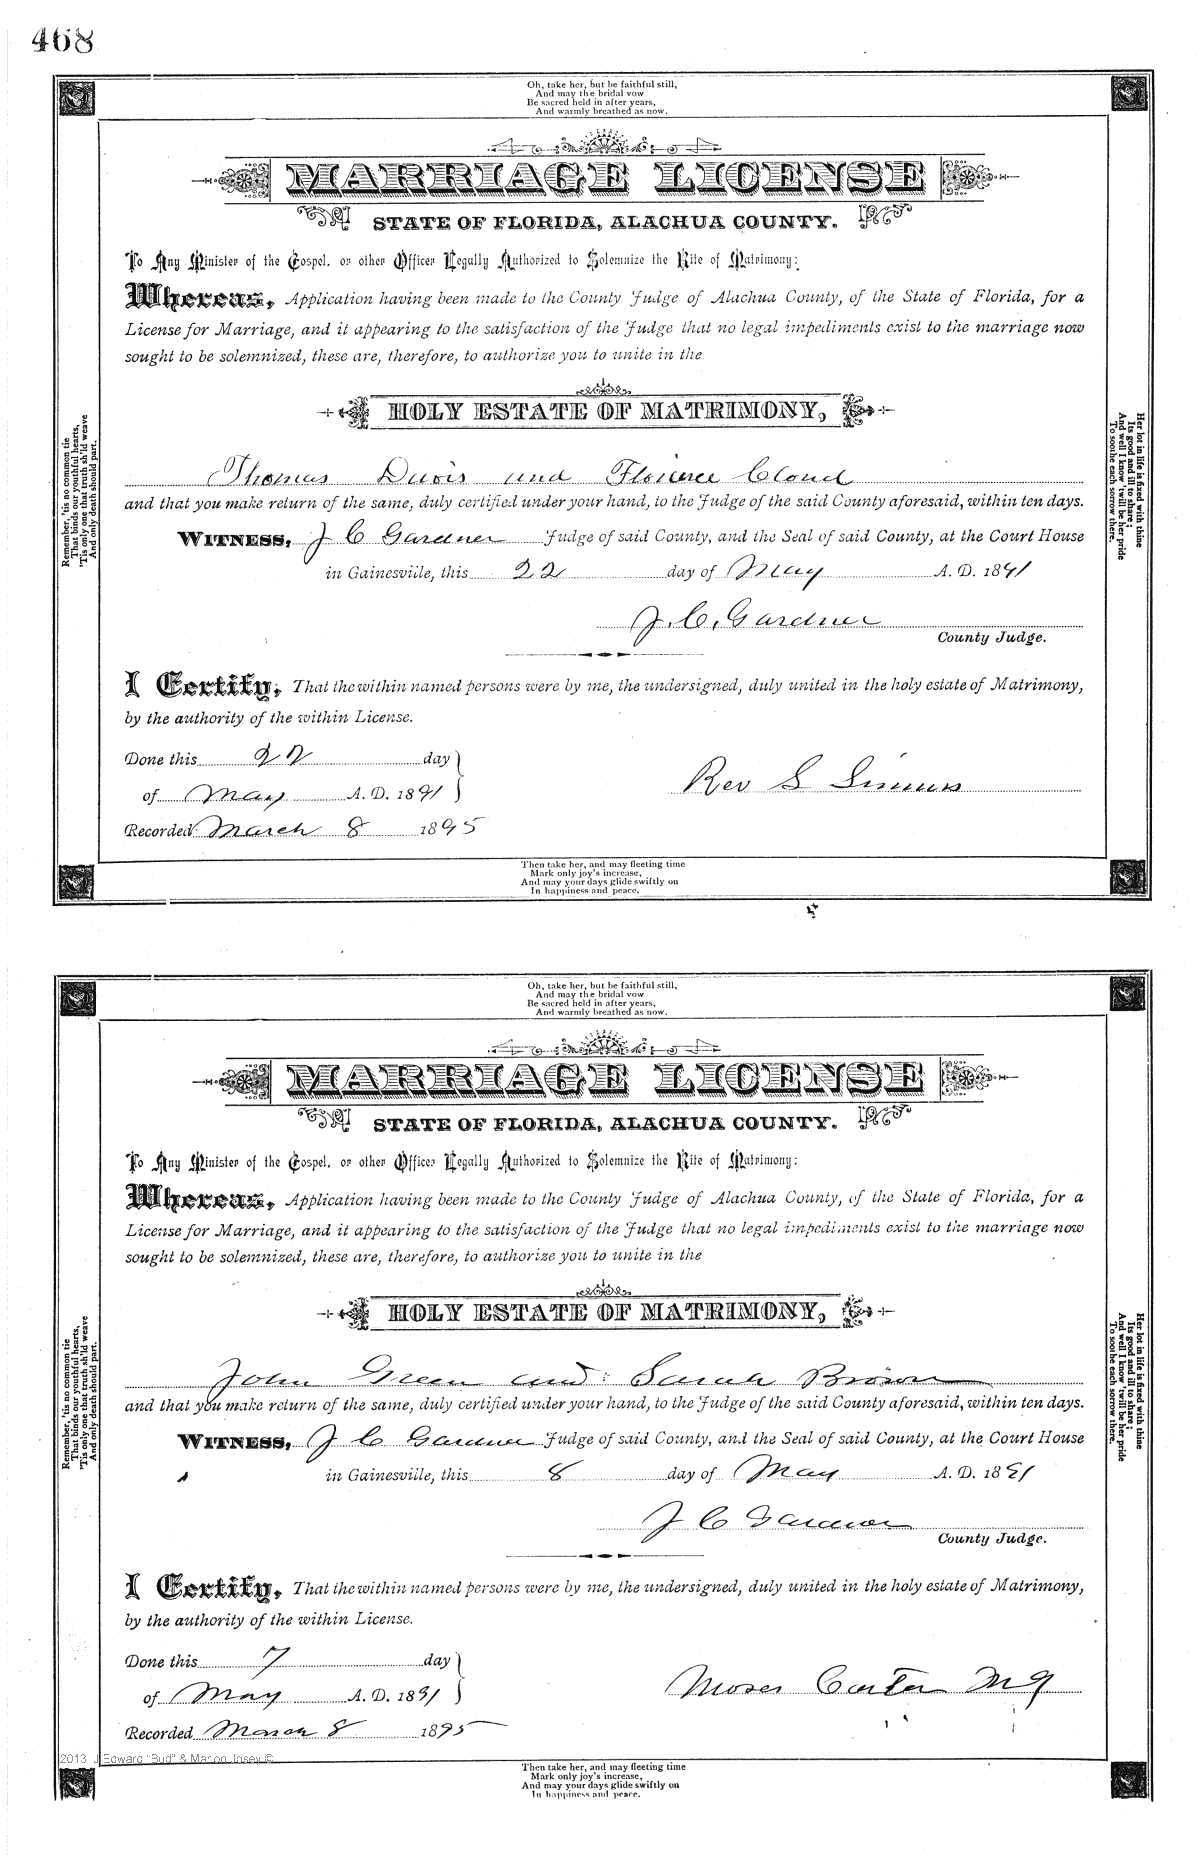 468
Oh, take her, but be faithful still,
And may the bridal vow
Be sacred held in after years,
And warmly breathed as now.
MARRIAGE LICENSE
STATE OF FLORIDA, ALACHUA COUNTY.
To Any Minister of the Gospel, or other Officer Legally Authorized to Solemnize the Rite of Matrimony:
Whereas, Application having been made to the County Judge of Alachua County, of the State of Florida, for a
License for Marriage, and it appearing to the satisfaction of the Judge that no legal impediments exist to the marriage now
sought to be solemnized, these are, therefore, to authorize you to unite in the
HOLY ESTATE OF MATRIMONY,
Thomas Davis and Florence Cloud
and that you make return of the same, duly certified under your hand, to the Judge of the said County aforesaid, within ten days.
WITNESS, J C Gardner Judge of said County, and the Seal of said County, at the Court House
in Gainesville, this 22 day of May A. D. 1891
J. C. Gardner
County Judge.
I Certify, That the within named persons were by me, the undersigned, duly united in the holy estate of Matrimony,
by the authority of the within License.
Done this 22 day
of May A. D. 1891
Rev S Simms
Recorded March 8 1895
Remember, 'tis no common tie
That binds our youthful hearts,
'Tis only one that truth sh'ld weave
And only death should part.
Her lot in life is fixed with thine
Its good and ill to share;
And well I know 'twill be her pride
To soothe each sorrow there.
Then take her, and may fleeting time
Mark only joy's increase,
And may your days glide swiftly on
In happiness and peace.
Oh, take her, but be faithful still,
And may the bridal vow
Be sacred held in after years,
And warmly breathed as now.
MARRIAGE LICENSE
STATE OF FLORIDA, ALACHUA COUNTY.
To Any Minister of the Gospel, or other Officer Legally Authorized to Solemnize the Rite of Matrimony:
Whereas, Application having been made to the County Judge of Alachua County, of the State of Florida, for a
License for Marriage, and it appearing to the satisfaction of the Judge that no legal impediments exist to the marriage now
sought to be solemnized, these are, therefore, to authorize you to unite in the
HOLY ESTATE OF MATRIMONY,
John Green and Sarah Brown
and that you make return of the same, duly certified under your hand, to the Judge of the said County aforesaid, within ten days.
WITNESS, J C Gardner Judge of said County, and the Seal of said County, at the Court House
in Gainesville, this 8 day of May A. D. 1891
J C Gardner
County Judge.
I Certify, That the within named persons were by me, the undersigned, duly united in the holy estate of Matrimony,
by the authority of the within License.
Done this 7 day
of May A. D. 1891
Moses Carter M G
Recorded March 8 1895
Remember, 'tis no common tie
That binds our youthful hearts,
'Tis only one that truth sh'ld weave
And only death should part.
Her lot in life is fixed with thine
Its good and ill to share;
And well I know 'twill be her pride
To soothe each sorrow there.
2013 J Edward "Bud" & Marion Josey ©
Then take her, and may fleeting time
Mark only joy's increase,
And may your days glide swiftly on
In happiness and peace.